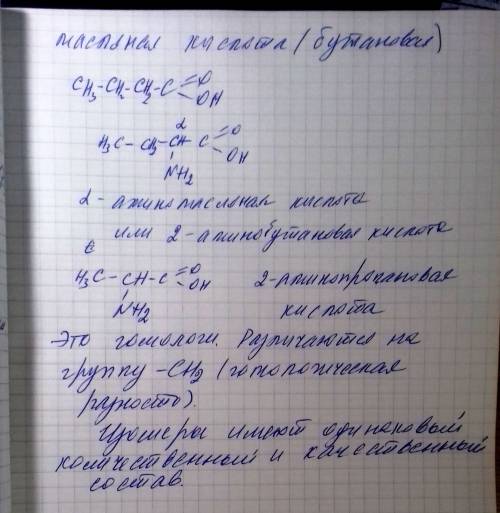 масляная кислота (бутановая)
CH₃-CH₂-CH₂-C=O
-OH
α
H₃C-CH₂-CH-C=O
OH
NH₂
α-аминомасляная кислота
или 2-аминобутановая кислота
и
H₃C-CH-C=O
OH 2-аминопропановая
NH₂ кислота
Это гомологи. Различаются на
группу -CH₂ (гомологическая
разность).
Изомеры имеют одинаковый
количественный и качественный
состав.